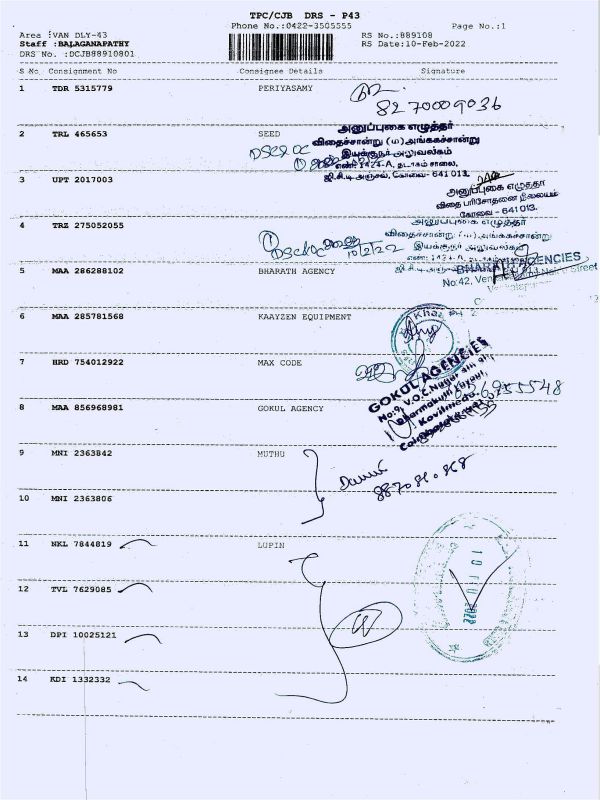 TPC/CJB DRS - P43
Phone No.:0422-3505555
Page No.:1
Area :VAN DLY-43
RS No.:889108
Staff :BALAGANAPATHY
RS Date:10-Feb-2022
DRS No. :DCJB88910801
S No Consignment No Consignee Details Signature
1 TDR 5315779 PERIYASAMY
8270009036
2 TRL 465653 SEED
அனுப்புகை எழுத்தர்
விதைச்சான்று (ம) அங்ககச்சான்று
இயக்குநர் அலுவலகம்
எண்: 1424-A, தடாகம் சாலை,
ஜி.சி.டி அஞ்சல், கோவை - 641 013.
3 UPT 2017003
அனுப்புகை எழுத்தர்
விதை பரிசோதனை நிலையம்
கோவை - 641 013.
4 TRZ 275052055
அனுப்புகை எழுத்தர்
விதைச்சான்று (ம) அங்ககச்சான்று
இயக்குநர் அலுவலகம்
10/2/22
5 MAA 286288102 BHARATH AGENCY
BHARATH AGENCIES
No:42, Street
6 MAA 285781568 KAAYZEN EQUIPMENT
7 HRD 754012922 MAX CODE
8 MAA 856968981 GOKUL AGENCY
GOKUL AGENCIES
No:9, V.O.C.Nagar
Dharmakutti
Kovilmedu
9 MNI 2363842 MUTHU
10 MNI 2363806
11 NKL 7844819 LUPIN
12 TVL 7629085
13 DPI 10025121
14 KDI 1332332